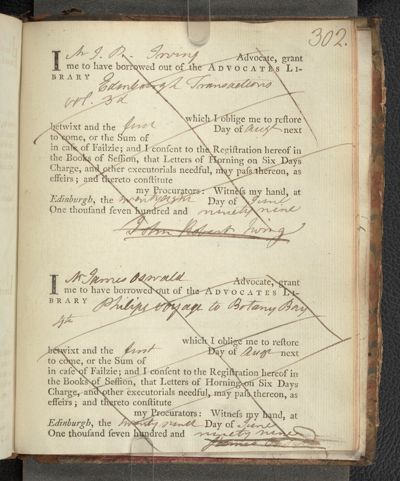 302.
I Mr J. R. Irving Advocate, grant
me to have borrowed out of the ADVOCATES LI-
BRARY Edinburgh Transactions
vol. 3d
which I oblige me to reſtore
betwixt and the first Day of Augt next
to come, or the Sum of
in caſe of Failzie; and I conſent to the Regiſtration hereof in
the Books of Seſſion, that Letters of Horning on Six Days
Charge, and other executorials needful, may paſs thereon, as
effeirs; and thereto conſtitute
my Procurators: Witneſs my hand, at
Edinburgh, the twentyeight Day of June
One thouſand ſeven hundred and ninety nine
John Robert Irving
I Mr James Oswald Advocate, grant
me to have borrowed out of the ADVOCATES LI-
BRARY Philips voyage to Botany Bay
4to
which I oblige me to reſtore
betwixt and the first Day of Augt next
to come, or the Sum of
in caſe of Failzie; and I conſent to the Regiſtration hereof in
the Books of Seſſion, that Letters of Horning on Six Days
Charge, and other executorials needful, may paſs thereon, as
effeirs; and thereto conſtitute
my Procurators: Witneſs my hand, at
Edinburgh, the twenty ninth Day of June
One thouſand ſeven hundred and ninety nine
James